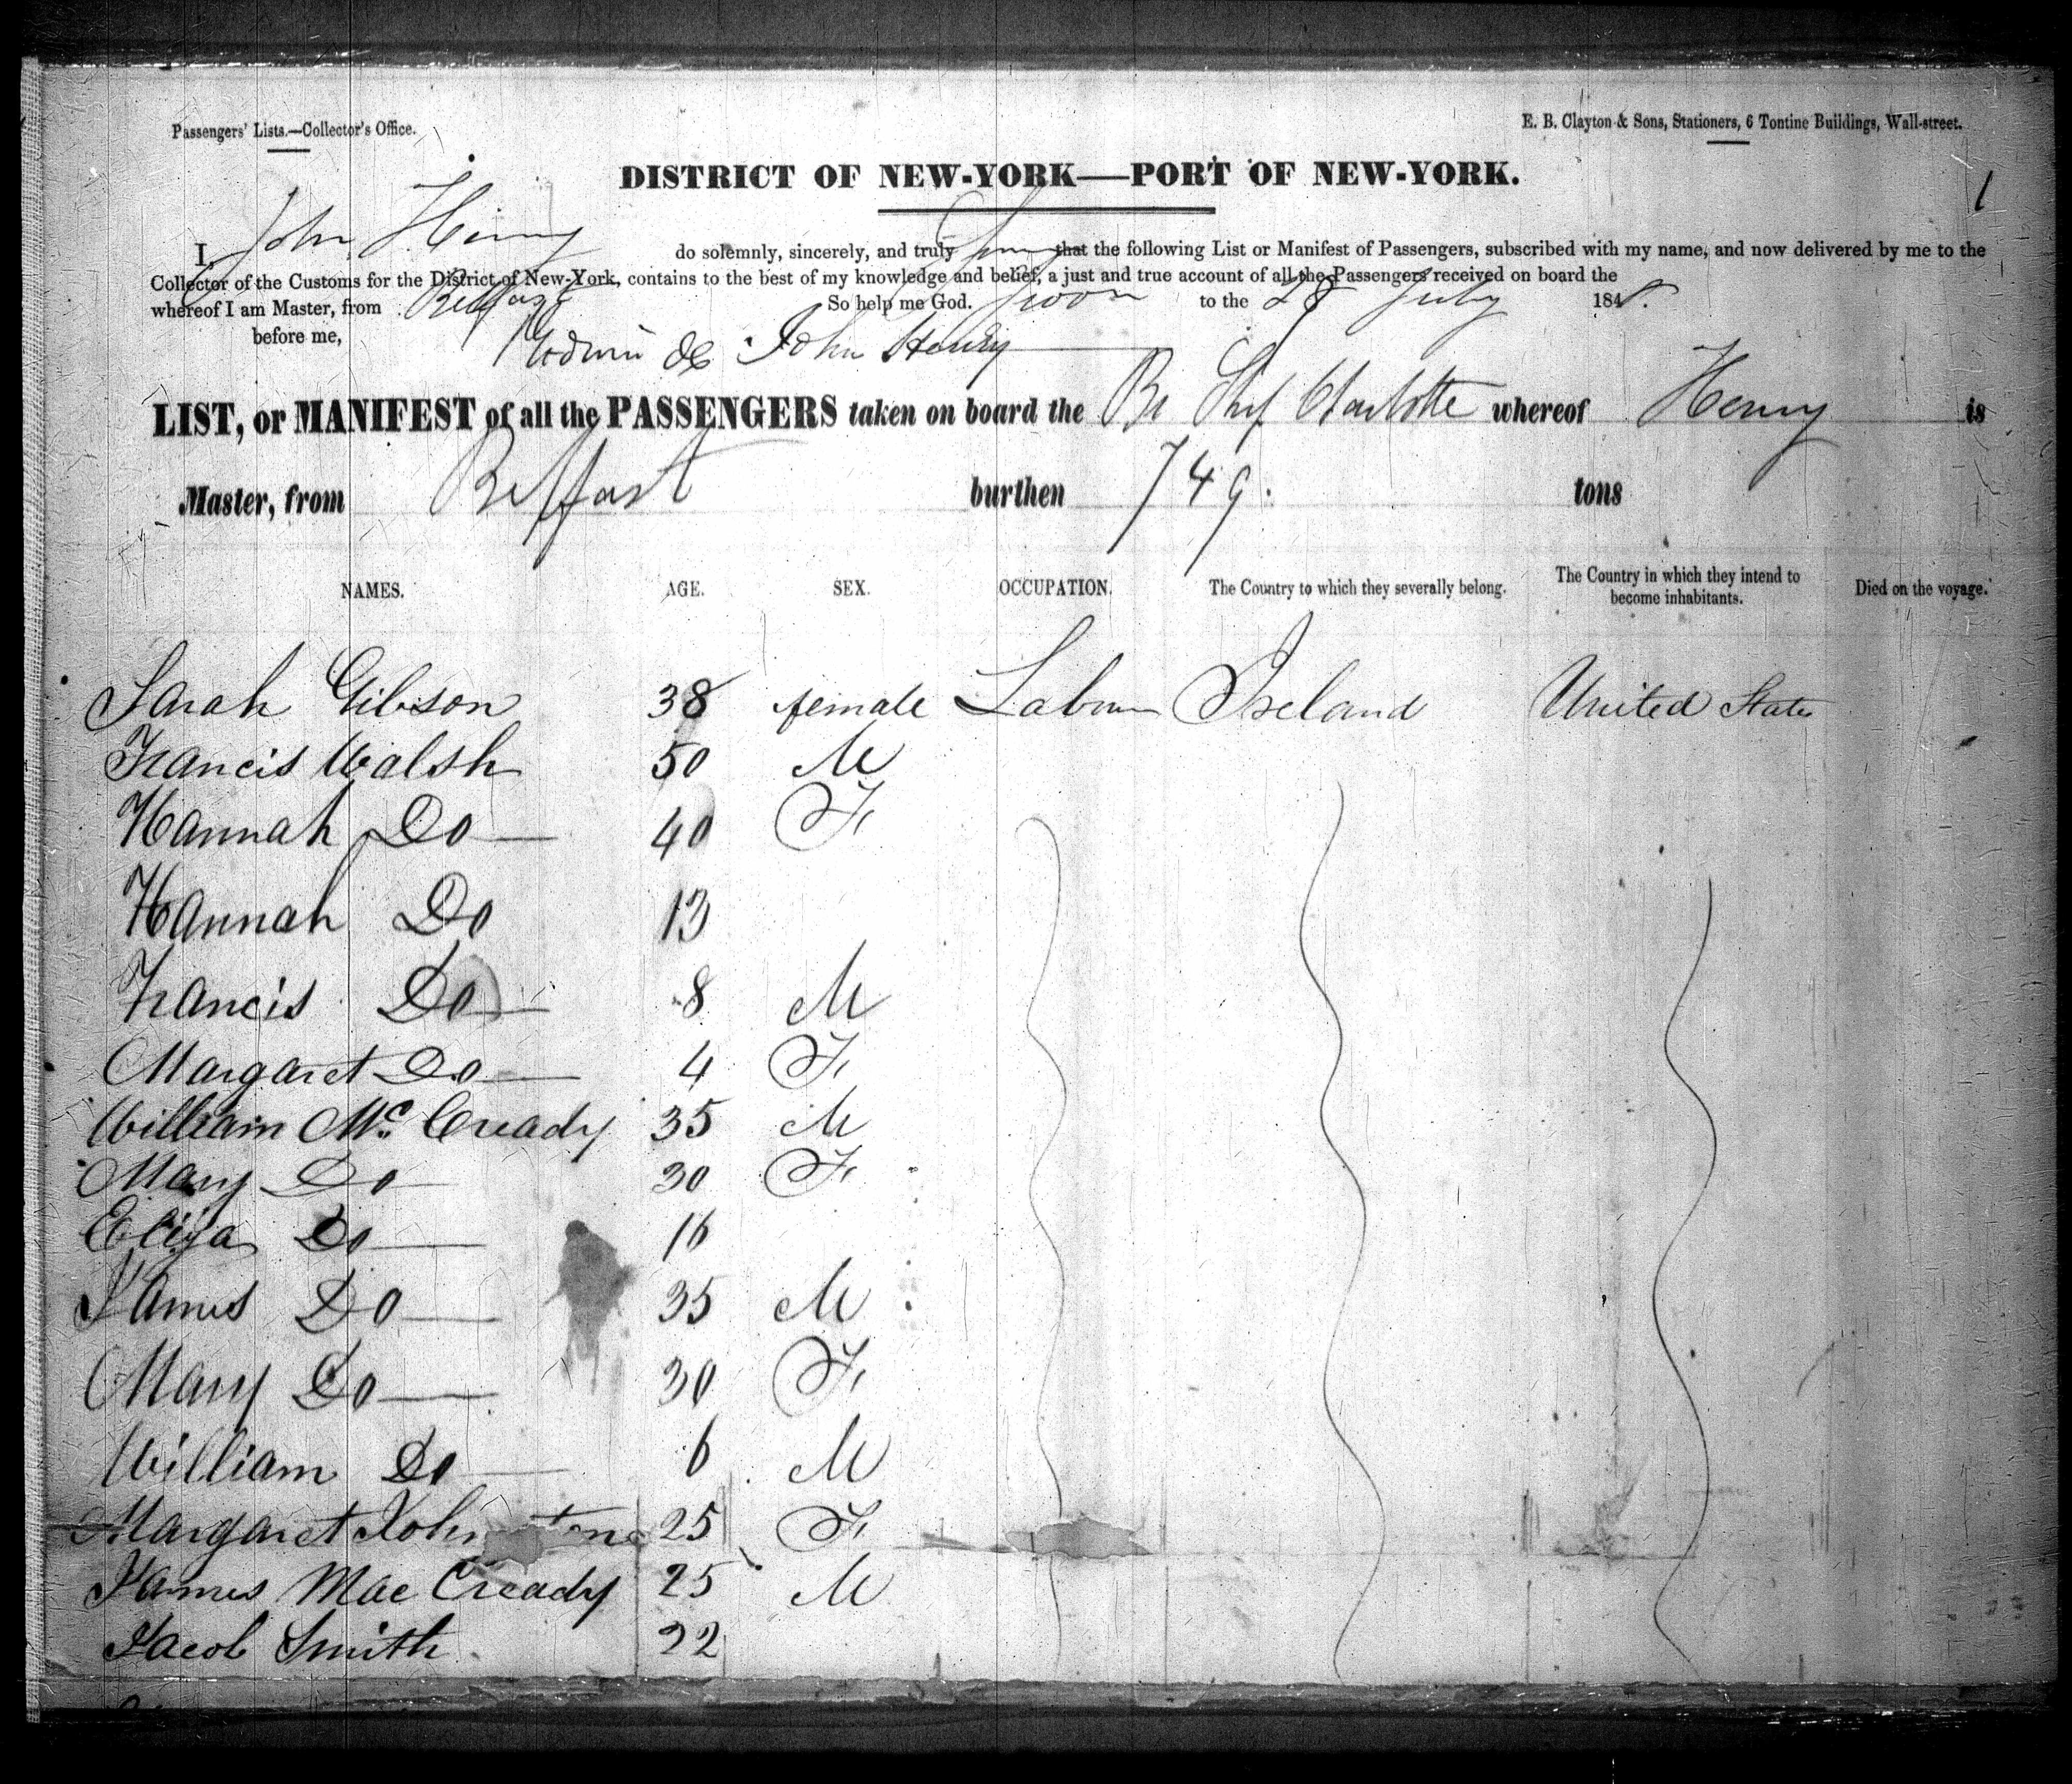 Passengers' Lists.—Collector's Office.
E. B. Clayton & Sons, Stationers, 6 Tontine Buildings, Wall-street.
DISTRICT OF NEW-YORK—PORT OF NEW-YORK.
1
I, John Henry do solemnly, sincerely, and truly that the following List or Manifest of Passengers, subscribed with my name, and now delivered by me to the
Collector of the Customs for the District of New-York, contains to the best of my knowledge and belief, a just and true account of all the Passengers received on board the
whereof I am Master, from Belfast So help me God. to the 28 July 184
before me, John Henry
LIST, or MANIFEST of all the PASSENGERS taken on board the Br Ship Charlotte whereof Henry is
Master, from Belfast burthen 749 tons
NAMES. AGE. SEX. OCCUPATION. The Country to which they severally belong. The Country in which they intend to become inhabitants. Died on the voyage.
Sarah Gibson 38 female Labour Ireland United States
Francis Walsh 50 M
Hannah Do 40 F
Hannah Do 13
Francis Do 8 M
Margaret Do 4 F
William McCready 35 M
Mary Do 30 F
Eliza Do 16
James Do 35 M
Mary Do 30 F
William Do 6 M
Margaret 25 F
James Mac Cready 25 M
Jacob Smith 22